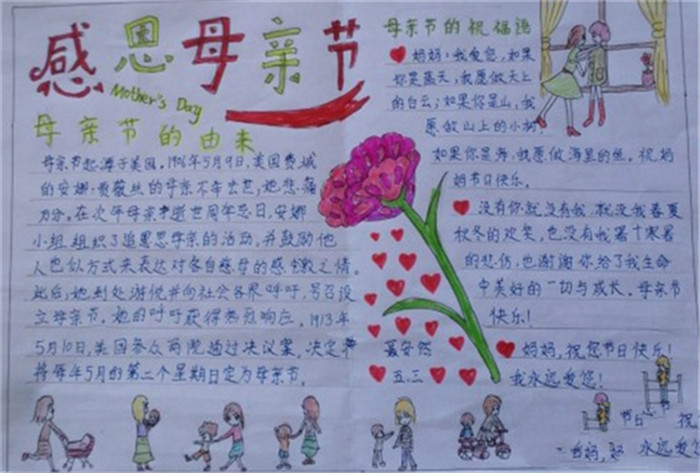 感恩母亲节
Mother's Day
母亲节的由来
母亲节起源于美国。1906年5月9日,美国费城
的安娜·贾薇丝的母亲不幸去世,她悲痛
万分。在次年母亲逝世周年忌日,安娜
小姐组织了追思母亲的活动,并鼓励他
人也以方式来表达对各自慈母的感激之情。
此后,她到处游说并向社会各界呼吁,号召设
立母亲节。她的呼吁获得热烈响应。1913年
5月10日,美国参众两院通过决议案,决定
将每年5月的第二个星期日定为母亲节。
母亲节的祝福语
妈妈:我爱您,如果
你是蓝天,我愿做天上
的白云;如果你是山,我
愿做山上的小树,
如果你是海,我愿做海里的鱼。祝妈
妈节日快乐。
没有你就没有我,就没我春夏
秋冬的欢笑,也没有我暑寒
的悲伤,也谢谢你给了我生命
中美好的一切与成长。母亲节
快乐!
妈妈,祝您节日快乐!
我永远爱您!
五.三
节日 祝
妈妈, 永远爱您!